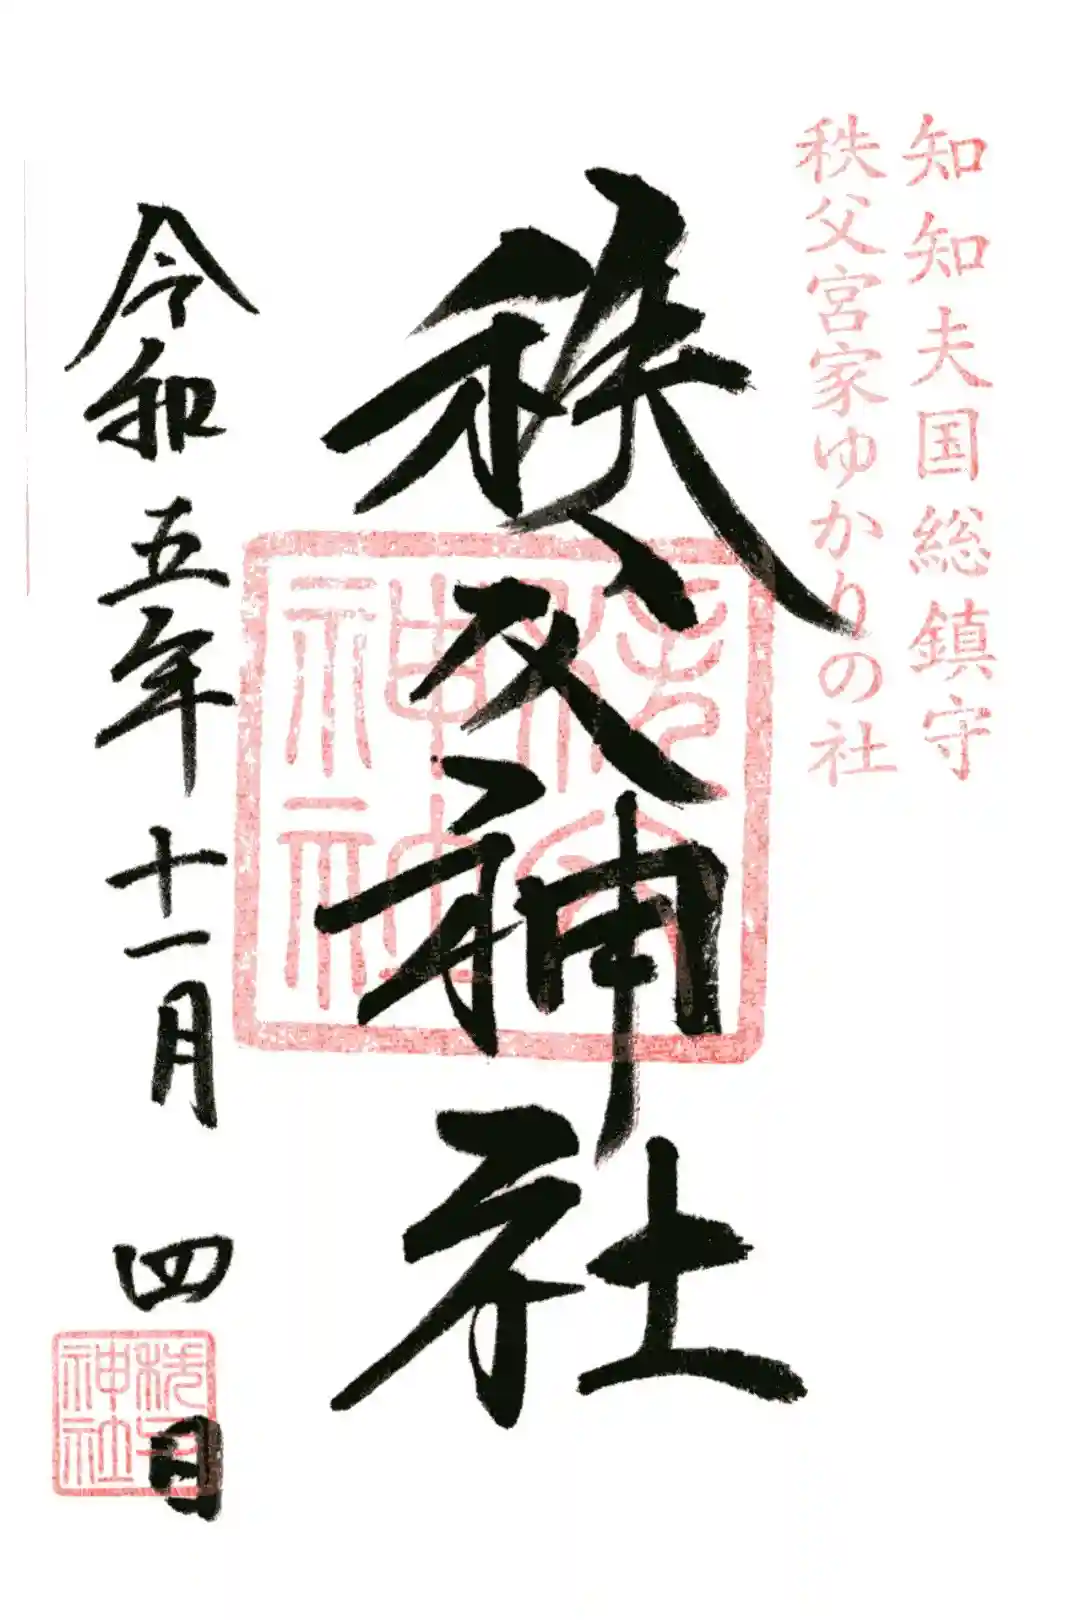 知知夫国総鎮守
秩父宮家ゆかりの社
秩父神社
秩父神社
令和五年十一月四日
秩父神社